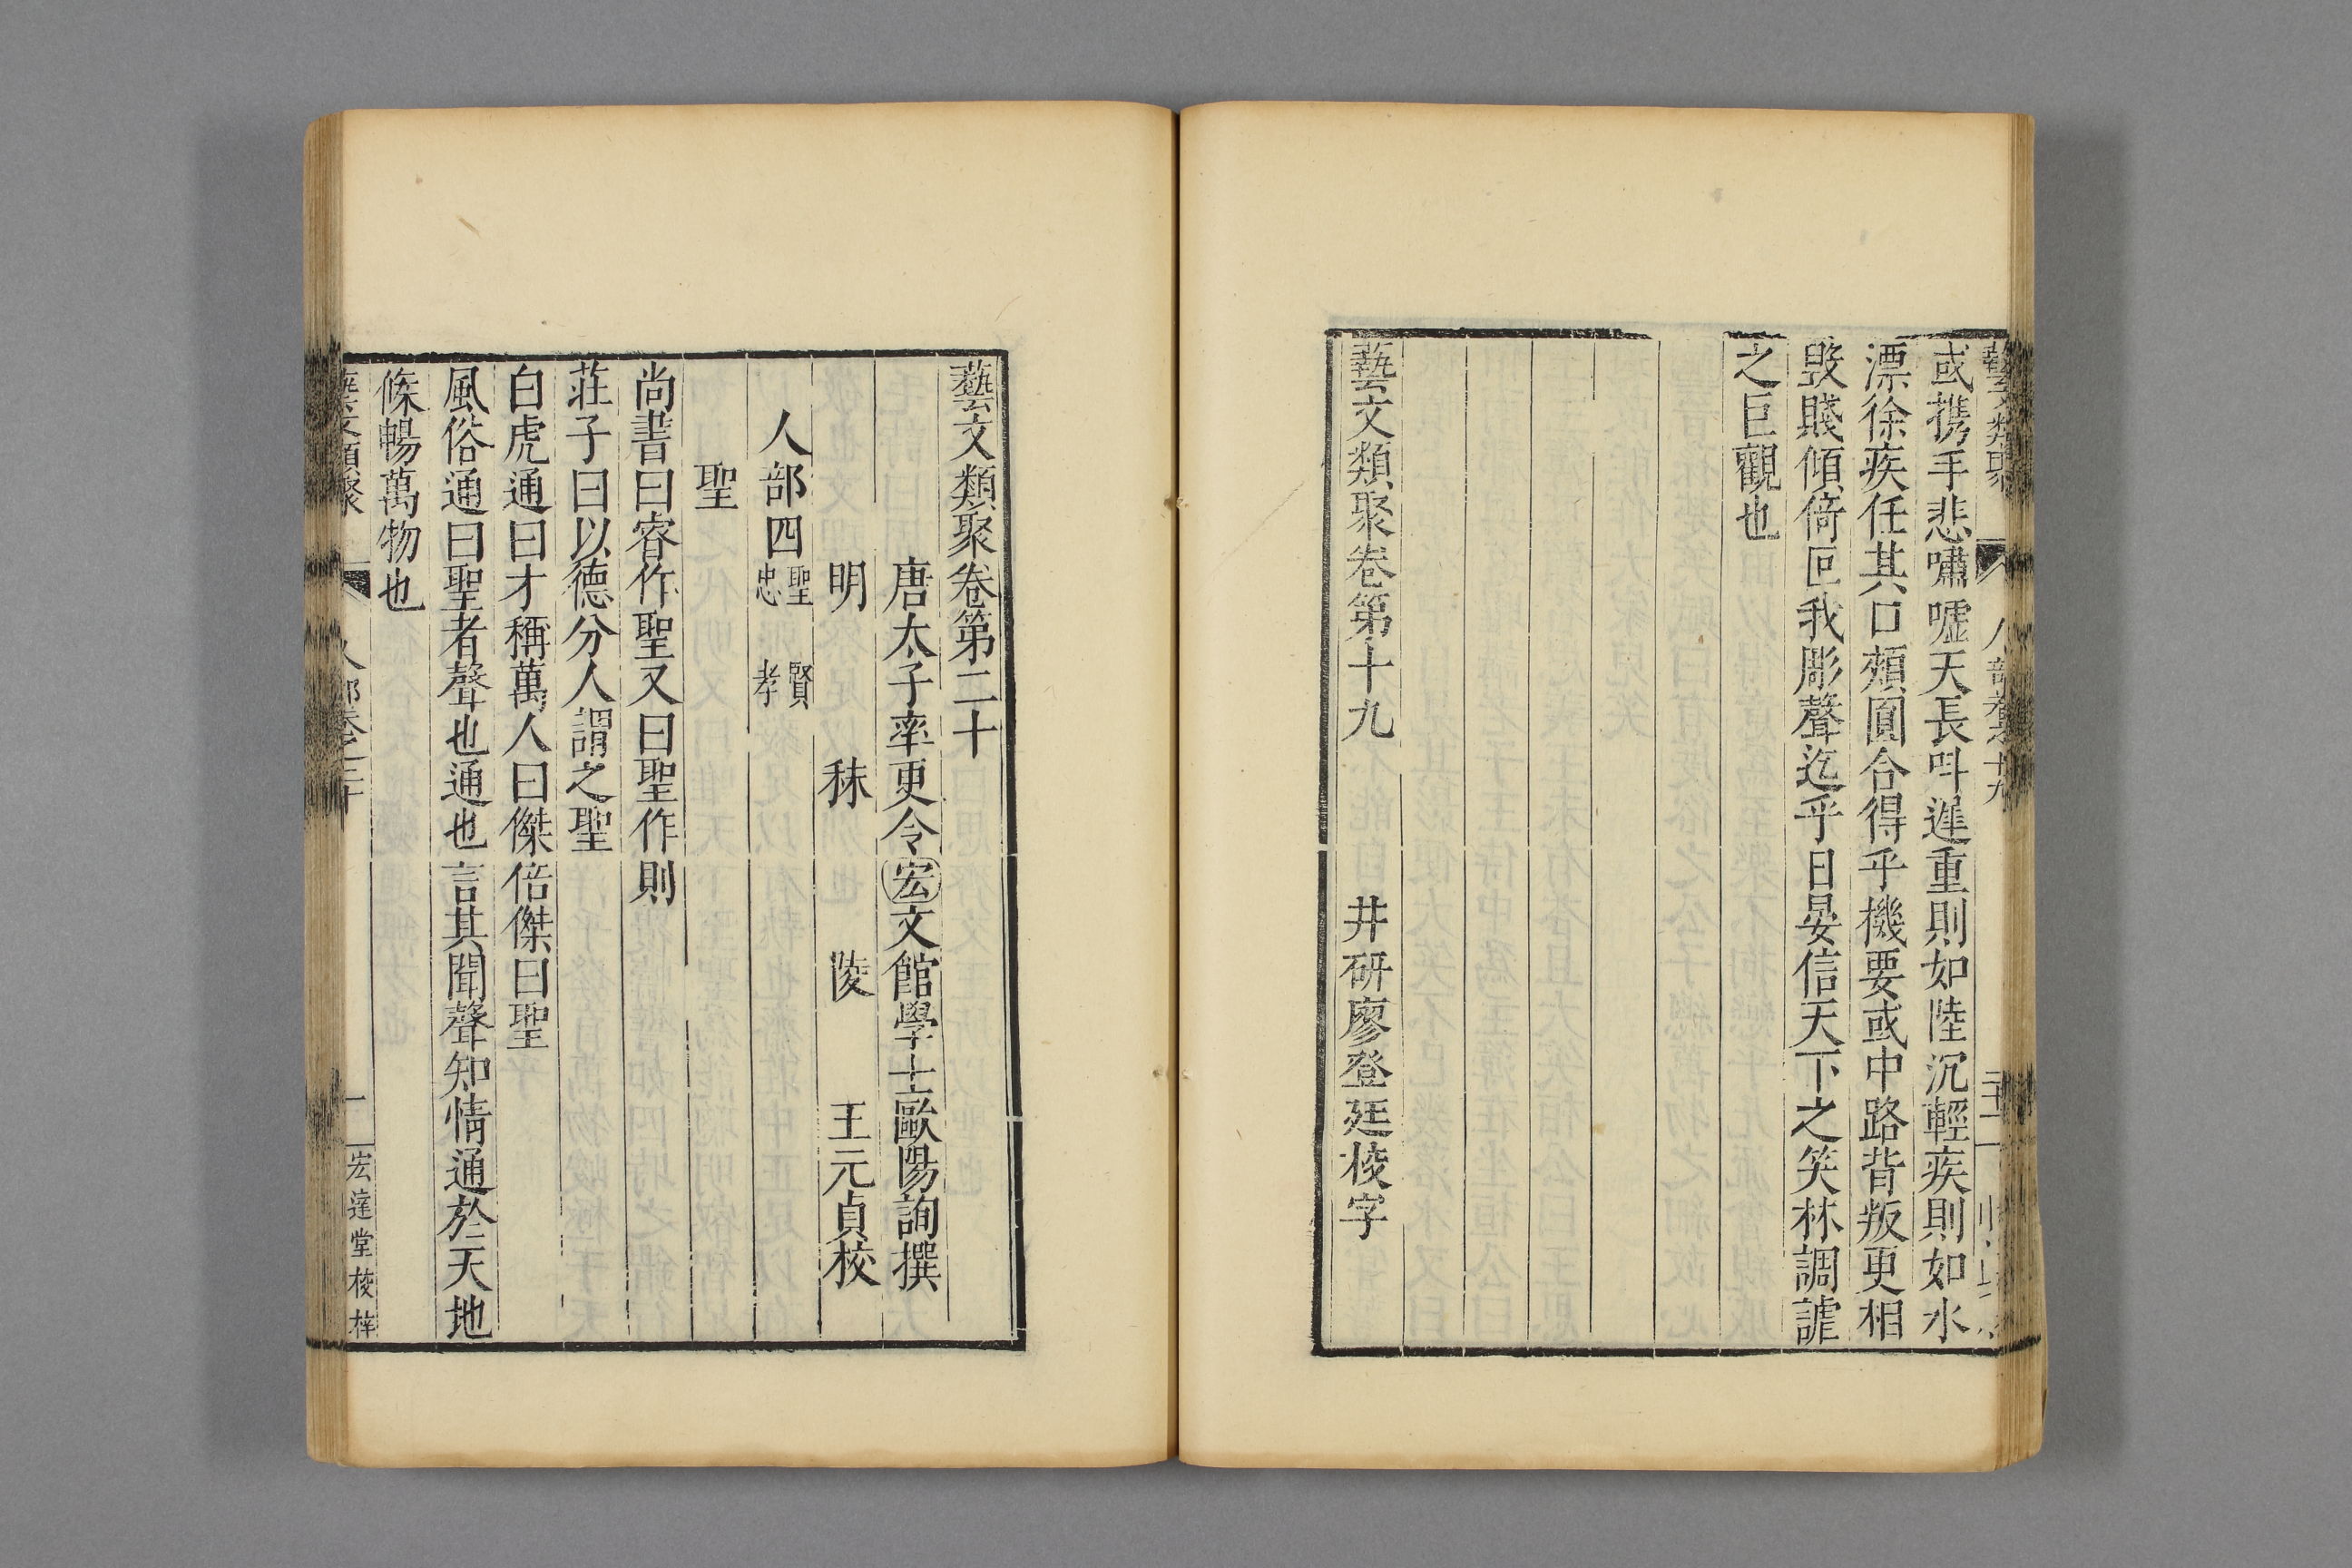 藝文類聚
人部卷十九
或携手悲嘯噓天長呌遲重則如陸沉輕疾則如水
漂徐疾任其口頰圓合得乎機要或中路背叛更相
毁賤傾倚囘我彫聲迄乎日晏信天下之笑林調謔
之巨觀也
藝文類聚卷第十九　　　井研廖登廷校字
藝文類聚卷第二十
唐太子率更令宏文館學士歐陽詢撰
明　秣　陵　王元貞校
人部四　聖　賢　忠　孝
聖
尚書曰睿作聖又曰聖作則
莊子曰以德分人謂之聖
白虎通曰才稱萬人曰傑倍傑曰聖
風俗通曰聖者聲也通也言其聞聲知情通於天地
條暢萬物也
藝文類聚
人部卷之二十
一
宏達堂校梓